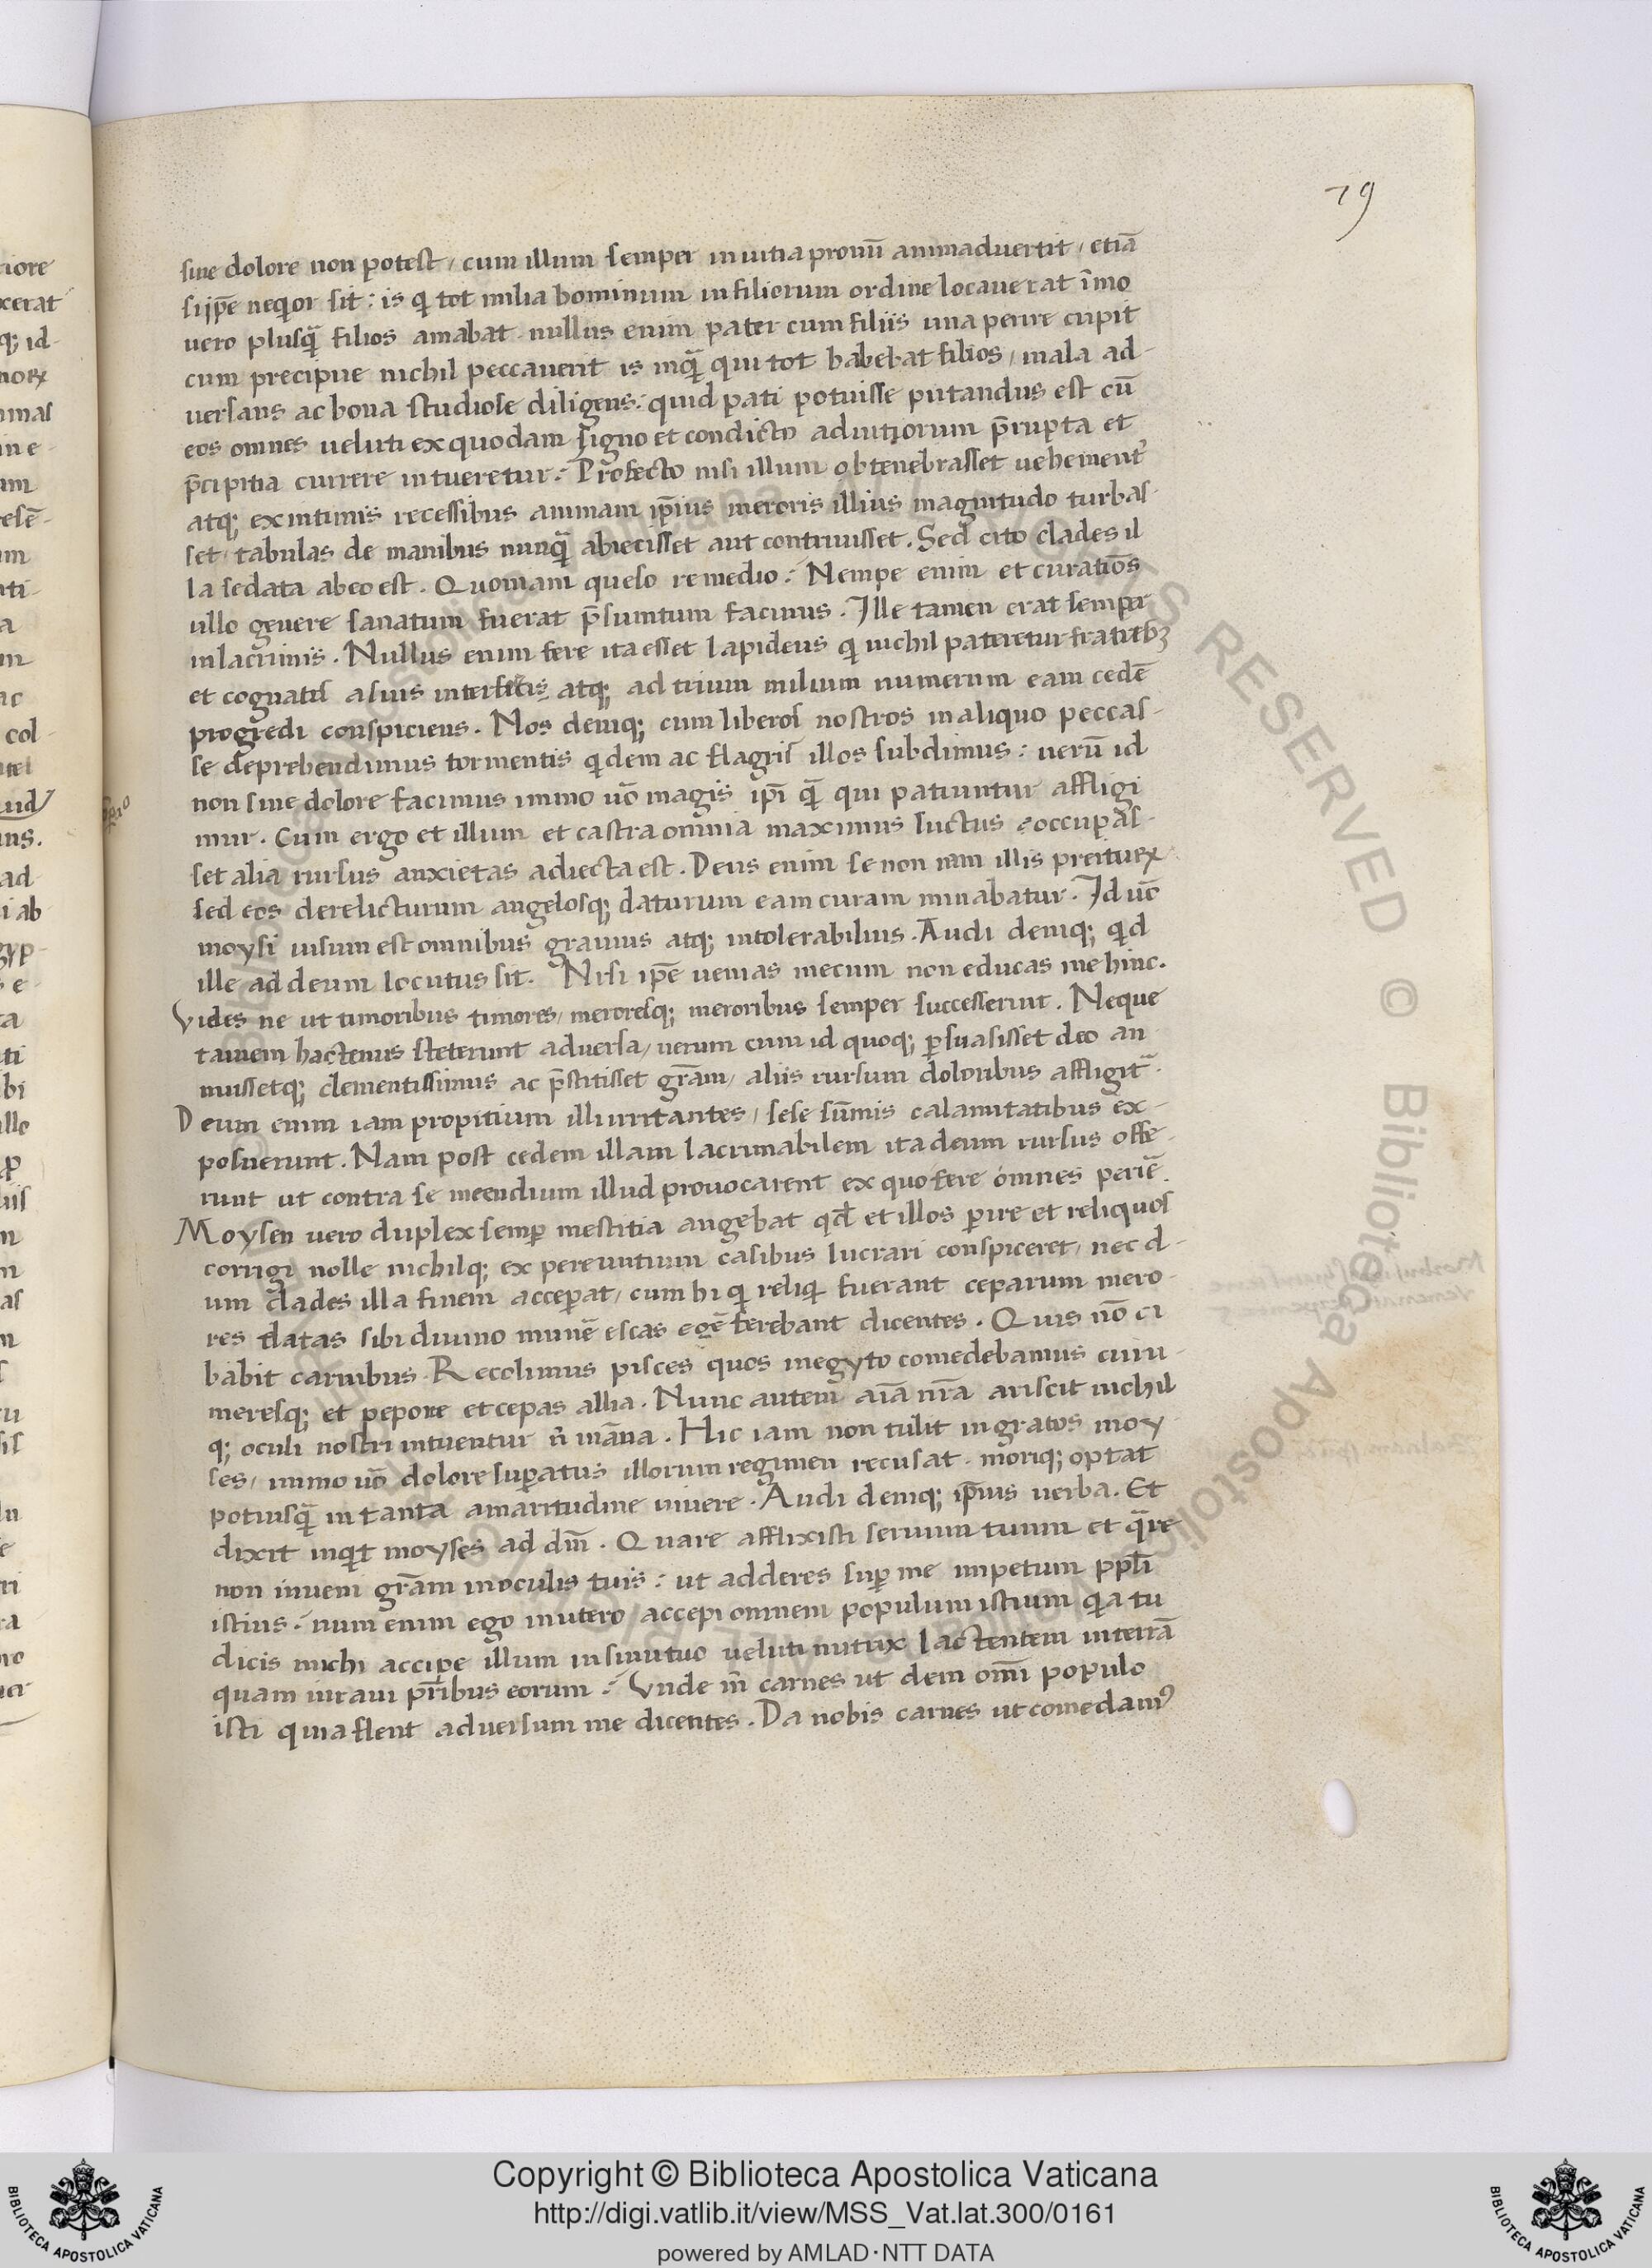 79
sine dolore non potest, cum illum semper in uitia pronū animaduertit, etiā
si ip̄e neqior sit: is qi tot milia hominum in filiorum ordine locauerat ī mo
uero plusq̄ filios amabat. nullus enim pater cum filiis una perire cupit
cum precipue nichil peccauerit is inq̄ qui tot habebat filios, mala ad-
uersans ac bona studiose diligens: quid pati potuisse putandus est cū
eos omnes ueluti ex quodam signo et condicto ad uitiorum p̄rupta et
p̄cipitia currere intueretur: Profecto nisi illum obtenebrasset uehement᾽
atq; ex intimis recessibus animam ip̄ius meroris illius magnitudo turbas-
set, tabulas de manibus nunq̄ abiecisset aut contriuisset. Sed cito clades il
la sedata ab eo est. Quoniam queso remedio: Nempe enim et curatiōs
ullo genere sanatum fuerat p̄sumtum facinus. Ille tamen erat semper
in lacrimis. Nullus enim fere ita esset lapideus qi nichil pateretur fratribꝫ
et cognatis a suis interfectis atq; ad trium milium numerum eam cedē
progredi conspiciens. Nos deniq; cum liberos nostros in aliquo peccas-
se deprehendimus tormentis qidem ac flagris illos subdimus: uerū id
non sine dolore facimus immo uō magis ip̄i q̄ qui patiuntur affligi
mur. Cum ergo et illum et castra omnia maximus luctus occupas-
set alia rursus anxietas adiecta est. Deus enim se non iam illis preiturꝝ
sed eos derelicturum angelosq; daturum eam curam minabatur. Id uō
moysi uisum est omnibus grauius atq; intolerabilius. Audi deniq; qid
ille ad deum locutus sit. Nisi ip̄e uenias mecum non educas me hinc.
Vides ne ut timoribus timores, meroresq; meroribus semper successerint. Neque
tamem hactenus steterunt aduersa, uerum cum id quoq; ꝑsuasisset deo an
nuissetq; clementissimus ac p̄stitisset gr̄am, aliis rursum doloribus affligit᾽.
Deum enim iam propitium illi irritantes, sese sūmis calamitatibus ex-
posuerunt. Nam post cedem illam lacrimabilem ita deum rursus offe-
runt ut contra se incendium illud prouocarent ex quo fere omnes periē.
Moysen uero duplex semꝑ mestitia angebat qd̄ et illos ꝑire et reliquos
corrigi nolle nichilq; ex pereuntium casibus lucrari conspiceret, nec d-
um clades illa finem acceperat, cum hi qi reliqi fuerant ceparum mero-
res datas sibi diuino munē escas egē ferebant dicentes. Quis nō ci
babit carnibus. Recolimus pisces quos in egyto comedebamus cucu-
meresq; et pepone et cepas allia. Nunc autem aīa nr̄a ariscit nichil
q; oculi nostri intuentur n̄ māna. Hic iam non tulit ingratos moy
ses, immo uō dolore suꝑatus illorum regimen recusat. moriq; optat
potiusq̄ in tanta amaritudine uiuere. Audi deniq; ip̄ius uerba. Et
dixit inqit moyses ad dn̄m. Quare afflixisti seruum tuum et q̄re
non inueni gr̄am in oculis tuis: ut adderes suꝑ me impetum pp̄li
istius: num enim ego in utero accepi omnem populum istium qia tu
dicis michi accipe illum in sinu tuo ueluti nutrix lactentem in terrā
quam iuraui pr̄ibus eorum: Vnde m̄ carnes ut dem om̄i populo
isti quia flent aduersum me dicentes. Da nobis carnes ut comedam᾽
Copyright © Biblioteca Apostolica Vaticana
http://digi.vatlib.it/view/MSS_Vat.lat.300/0161
powered by AMLAD·NTT DATA
BIBLIOTECA APOSTOLICA VATICANA
BIBLIOTECA APOSTOLICA VATICANA